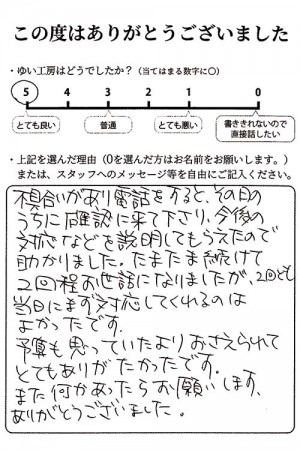 この度はありがとうございました
・ゆい工房はどうでしたか？（当てはまる数字に○）
5 4 3 2 1 0
とても良い 普通 とても悪い 書ききれないので直接話したい
・上記を選んだ理由（0を選んだ方はお名前をお願いします。）
または、スタッフへのメッセージ等を自由にご記入ください。
不具合があり電話をすると、その日の
うちに確認に来て下さり、今後の
対応などを説明してもらえたので
助かりました。たまたま続けて
2回程お世話になりましたが、2回とも
当日にまず対応してくれるのは
よかったです。
予算も思っていたよりおさえられて
とてもありがたかったです。
また何かあったらお願いします。
ありがとうございました。